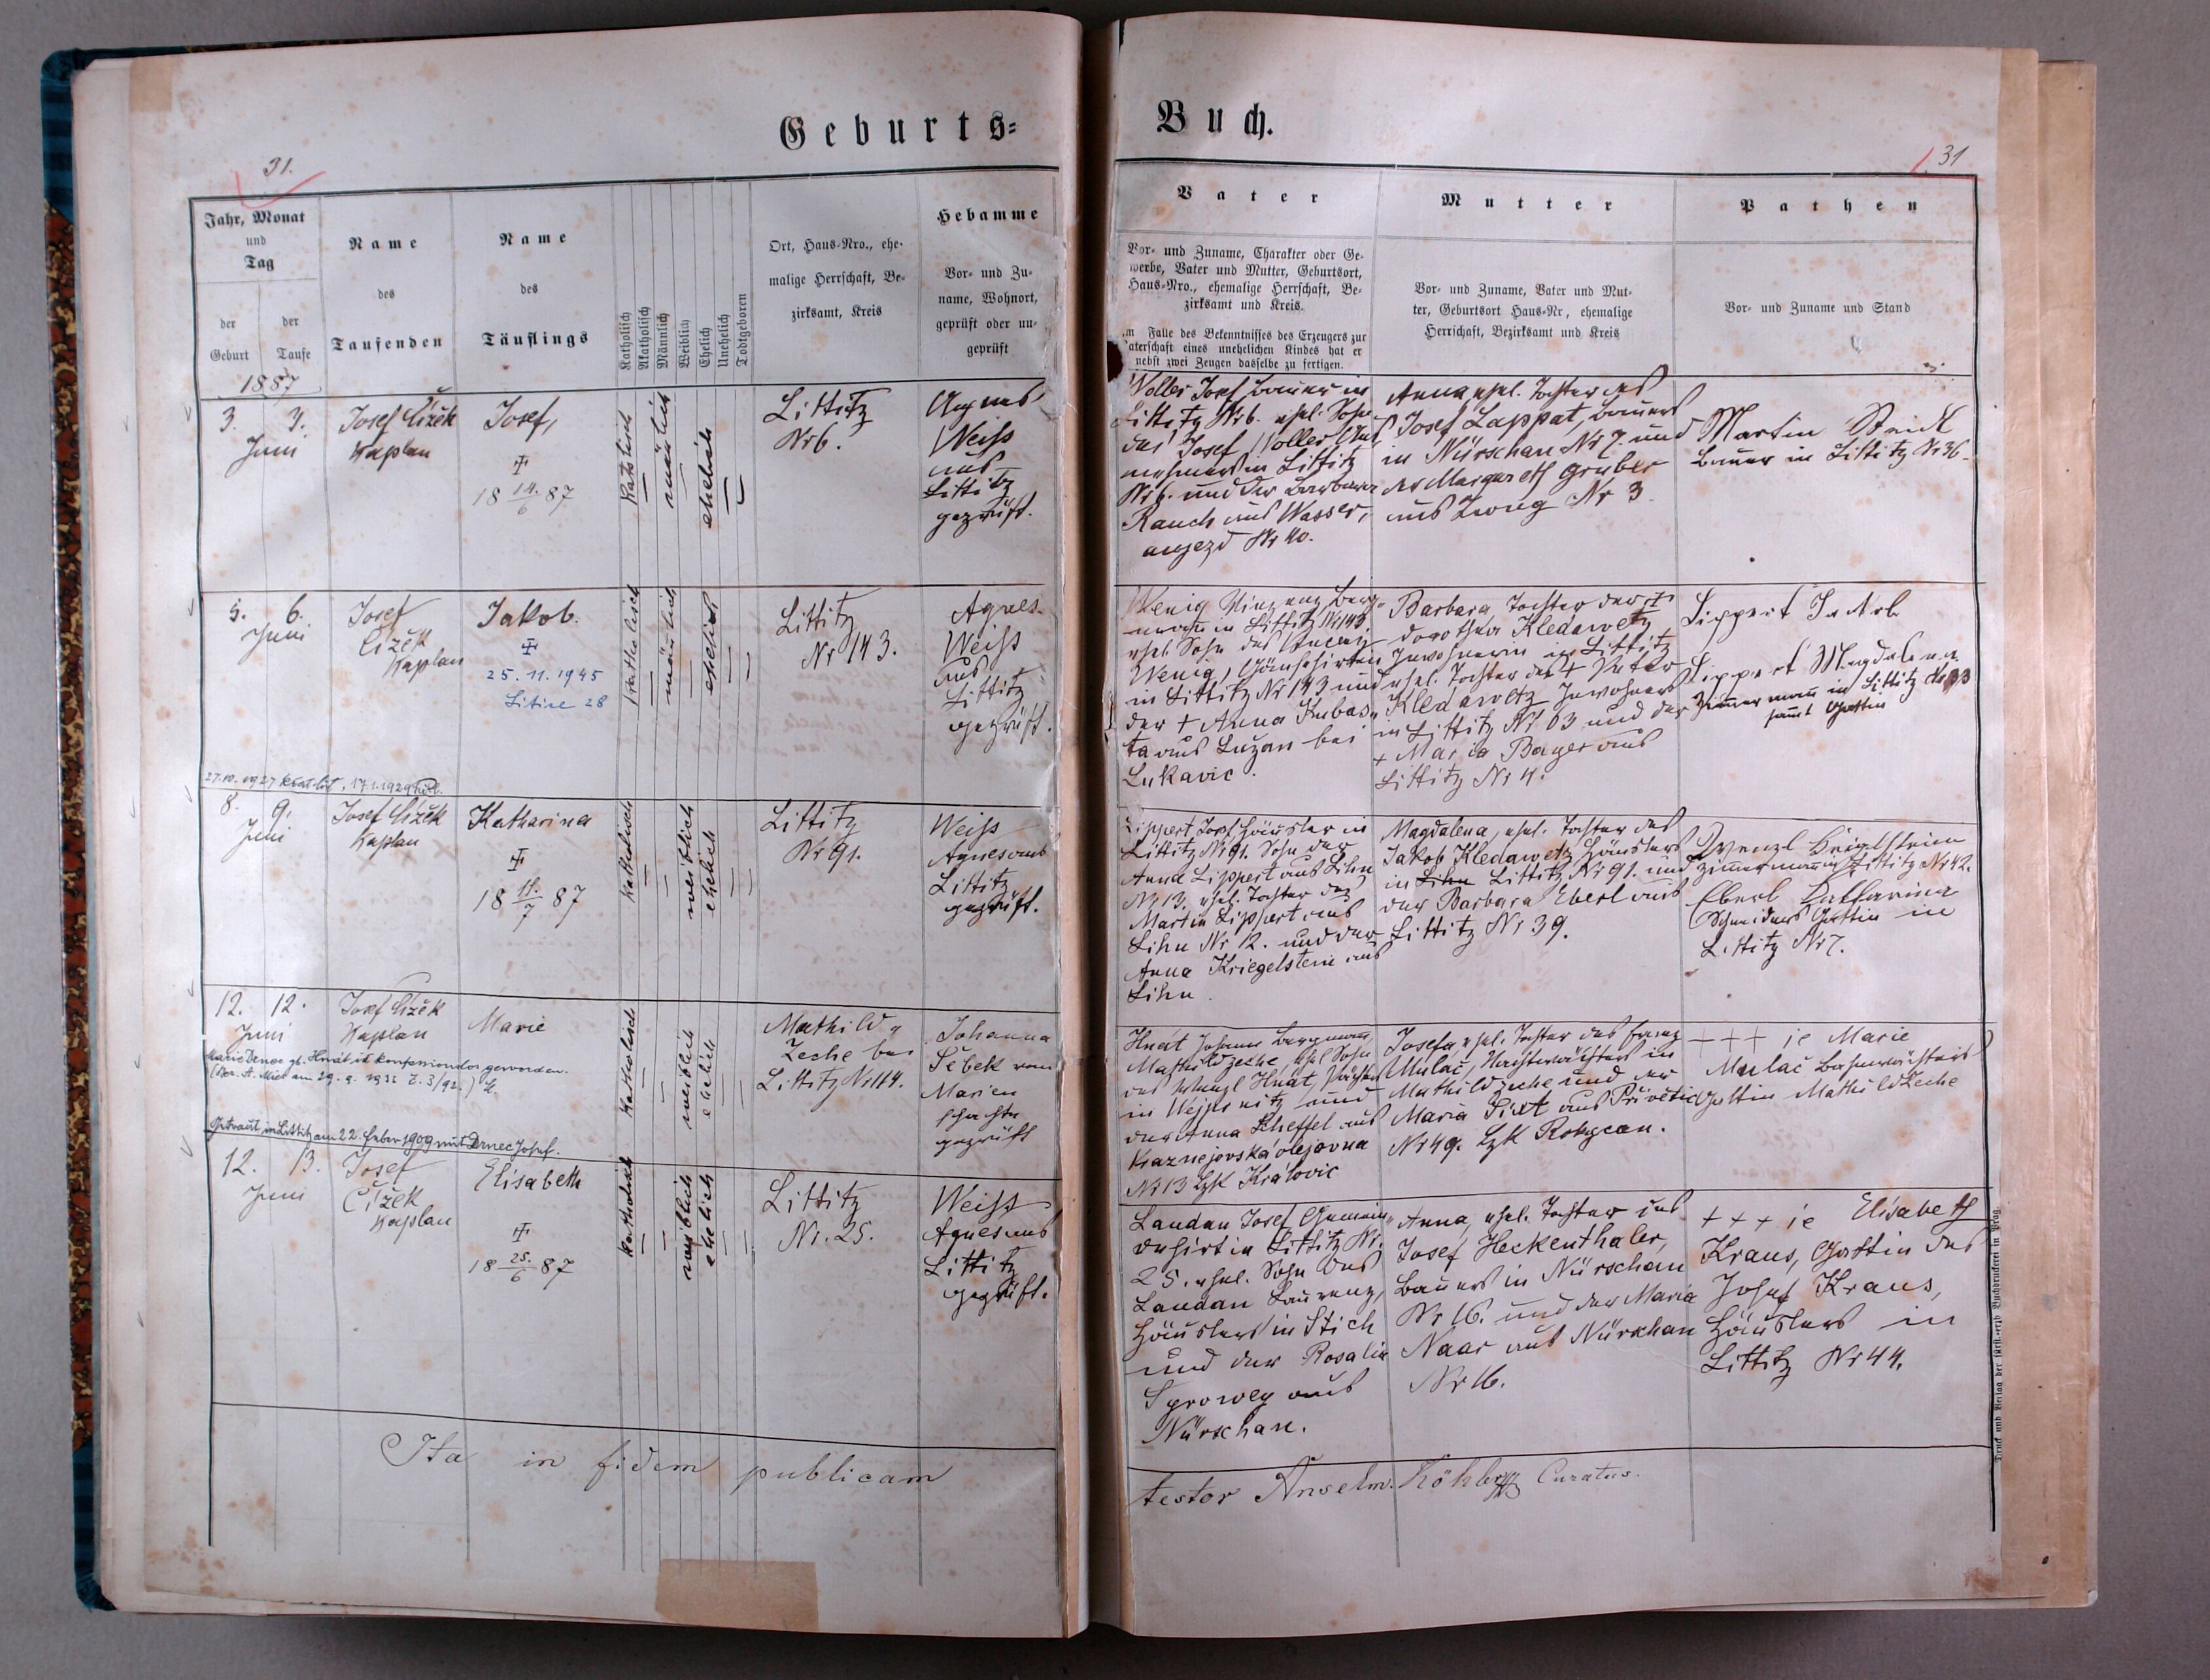 Geburts-
31.
Jahr, Monat
und
Tag
der
Geburt
der
Taufe
Name
des
Taufenden
Name
des
Täuflings
Katholisch
Akatholisch
Männlich
Weiblich
Ehelich
Unehelich
Todtgeboren
Ort, Haus-Nro., ehe-
malige Herrschaft, Be-
zirksamt, Kreis
Hebamme
Vor- und Zu-
name, Wohnort,
geprüft oder un-
geprüft
1887
3. 3.
Juni
Josef Čížek
Kaplan
Josef,
18 14./6 87
Katholisch
männlich
ehelich
Littitz
Nr 6.
Agnes
Weiss
aus
Littitz
geprüft.
5. 6.
Juni
Josef
Čížek
Kaplan
Jakob.
25. 11. 1945
Litice 28
Katholisch
männlich
ehelich
Littitz
Nr 143.
Agnes
Weiss
aus
Littitz
geprüft.
27.10.1927 17.1.1929
8. 9.
Juni
Josef Čížek
Kaplan
Katharina
18 11./7 87
Katholisch
weiblich
ehelich
Littitz
Nr 91.
Weiss
Agnes aus
Littitz
geprüft.
12. 12.
Juni
Josef Čížek
Kaplan
Marie
Katholisch
weiblich
ehelich
Mathild-
Zeche bei
Littitz Nr 114.
Johanna
Šebek vom
Marien
schachte
geprüft
Marie Drnec gb. Hnát ist konfessionslos geworden.
(Bez. A. Mies am 29. 9. 1932 Z. 3/92.)
Getraut in Littitz am 22. Feber 1909 mit Drnec Josef.
12. 13.
Juni
Josef
Čížek
Kaplan
Elisabeth
18 25./6 87
Katholisch
weiblich
ehelich
Littitz
Nr. 25.
Weiss
Agnes aus
Littitz
geprüft.
Ita in fidem publicam
Buch.
31
Vater
Vor- und Zuname, Charakter oder Ge-
werbe, Vater und Mutter, Geburtsort,
Haus-Nro., ehemalige Herrschaft, Be-
zirksamt und Kreis.
Im Falle des Bekenntnisses des Erzeugers zur
Vaterschaft eines unehelichen Kindes hat er
nebst zwei Zeugen dasselbe zu fertigen.
Mutter
Vor- und Zuname, Vater und Mut-
ter, Geburtsort Haus-Nr, ehemalige
Herrschaft, Bezirksamt und Kreis
Pathen
Vor- und Zuname und Stand
Woller Josef Bauer in
Littitz Nr 6. ehel. Sohn
des Josef Woller Aus-
nehmers in Littitz
Nr 6. und der Barbara
Rauch aus Wasser-
augezd Nr 40.
Anna, ehel. Tochter des
Josef Lappat, Bauers
in Nürschan Nr 7. und
der Margareth Gruber
aus Zwug Nr 3.
Martin
Bauer in Littitz Nr 36.
Wenig Vinzenz Berg-
mann in Littitz Nr 143
ehel. Sohn des Vincenz
Wenig, Gänshirten
in Littitz Nr 143 und
der + Anna Kubas-
ta aus Luzan bei
Lukavic.
Barbara, Tochter der +
Dorothea Kledawetz
Inwohnerin in Littitz
ehel. Tochter des +
Kledawetz Inwohners
in Littitz Nr 63 und der
+ Maria Bayer aus
Littitz Nr 4.
Lippert Jakob
Lippert Magdalena
Zimmermann in Littitz Nr 33
sammt Gattin
Lippert Josef Häusler in
Littitz Nr 91. Sohn der
Anna Lippert aus Lihn
Nr 13. ehel. Tochter des
Martin Lippert aus
Lihn Nr 12. und der
Anna Kriegelstein aus
Lihn.
Magdalena, ehel. Tochter des
Jakob Kledawetz Häuslers
in Lihn Littitz Nr 91. und
der Barbara Eberl aus
Littitz Nr 39.
Wenzl
Zimmermann in Littitz Nr 42.
Eberl Katharina
Schneiders Gattin in
Littitz Nr 7.
Hnát Johann Bergmann
Mathildzeche, ehel. Sohn
des Wenzl Hnát,
in Wejprnitz und
der Anna Scheffel aus
Kaznejovská olejovna
Nr 13 Bzk Kralovic
Josefa ehel. Tochter des Franz
Mulač, Nachtwächters in
Mathildzeche und der
Maria Sixt aus Přívětic
Nr 49. Bzk Rokycan.
+++ ie Marie
Mulač Bahnwächters
Gattin Mathildzeche
Landan Josef Gemein-
dehirt in Littitz Nr.
25. ehel. Sohn des
Landan Laurenz,
Häuslers in Stich
und der Rosalia
Sprowey aus
Nürschan.
Anna, ehel. Tochter des
Josef Heckenthaler,
Bauers in Nürschan
Nr 16. und der Maria
Naar aus Nürschan
Nr 16.
+++ ie Elisabeth
Kraus, Gattin des
Josef Kraus,
Häuslers in
Littitz Nr 44.
testor Anselm. Köhler Curatus.
Druck und Verlag der fürst.-erzb Buchdruckerei in Prag.